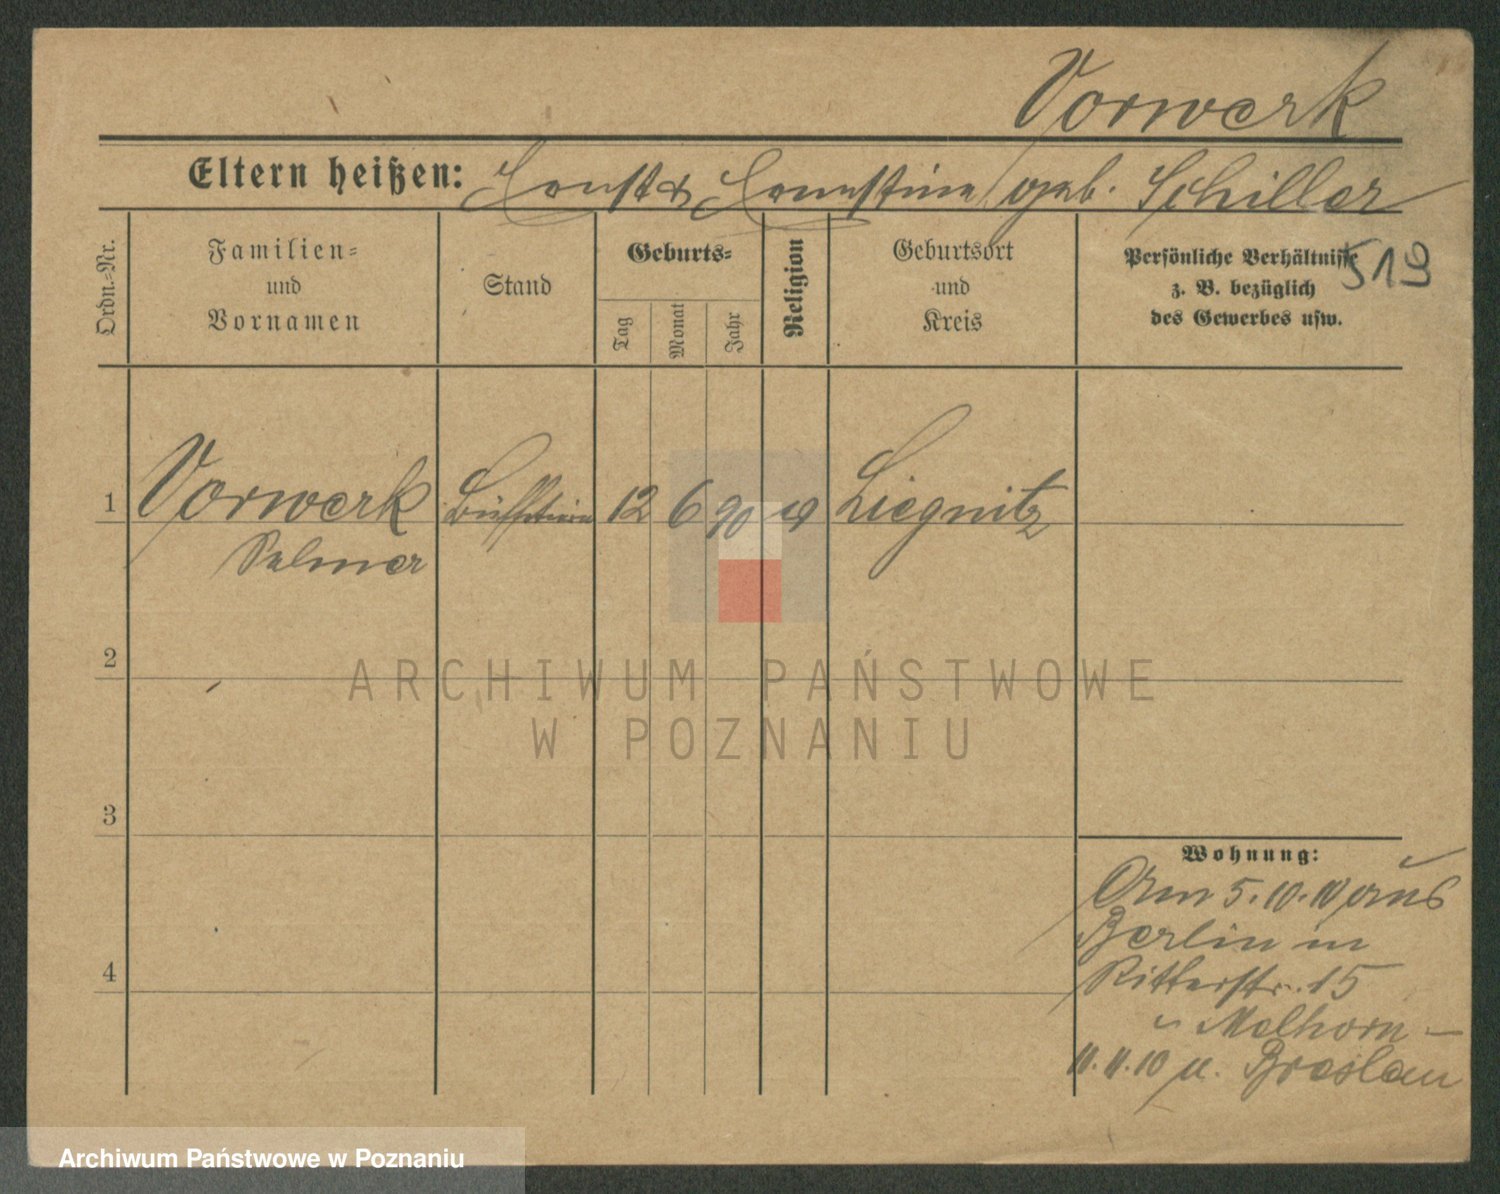 Vorwerk
Eltern heißen: Ernst & Ernestine geb. Schiller
Ordn.-Nr.
Familien=
und
Vornamen
Stand
Geburts=
Tag
Monat
Jahr
Religion
Geburtsort
und
Kreis
Persönliche Verhältnisse
z. B. bezüglich
des Gewerbes usw.
519
1 Vorwerk 12 6 90 Liegnitz
2
ARCHIWUM PAŃSTWOWE
W POZNANIU
3
Wohnung:
5.10.10 aus
Berlin in
4
Ritterstr. 15
Melhorn
11.11.10 n. Breslau
Archiwum Państwowe w Poznaniu